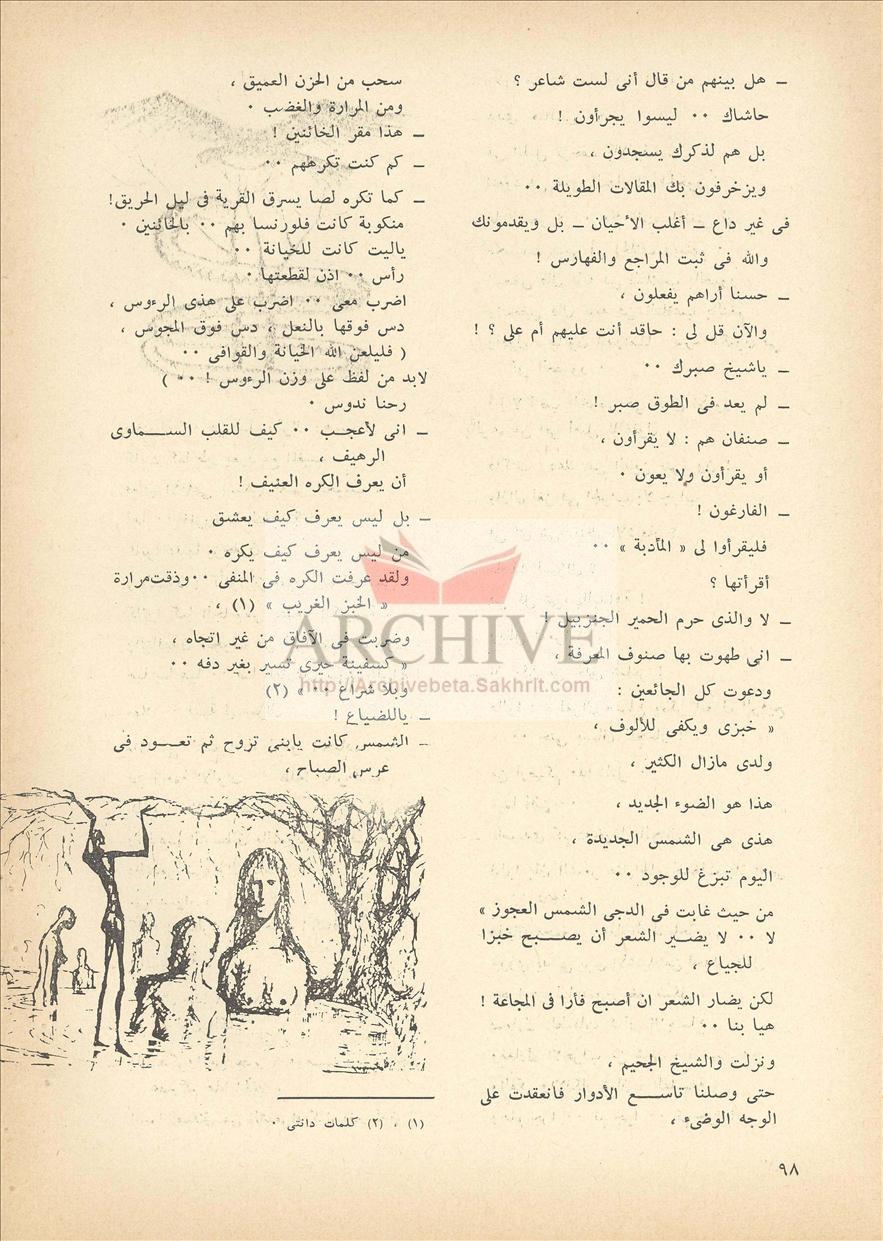 ـ هل بينهم من قال أنى لست شاعر ؟
حاشاك ٠٠ ليسوا يجرأون !
بل هم لذكرك يسجدون ،
ويزخرفون بك المقالات الطويلة ٠٠
فى غير داع ـ أغلب الأحيان ـ بل ويقدمونك
والله فى ثبت المراجع والفهارس !
ـ حسنا أراهم يفعلون ،
والآن قل لى : حاقد أنت عليهم أم على ؟ !
ـ ياشيخ صبرك ٠٠
ـ لم يعد فى الطوق صبر !
ـ صنفان هم : لا يقرأون ،
أو يقرأون ولا يعون ٠
ـ الفارغون !
فليقرأوا لى « المأدبة » ٠٠
أقرأتها ؟
ـ لا والذى حرم الحمير الجنزبيل !
ـ انى طهوت بها صنوف المعرفة ،
ودعوت كل الجائعين :
« خبزى ويكفى للألوف ،
ولدى مازال الكثير ،
هذا هو الضوء الجديد ،
هذى هى الشمس الجديدة ،
اليوم تبزغ للوجود ٠٠
من حيث غابت فى الدجى الشمس العجوز »
لا ٠٠ لا يضـير الشعر أن يصـــبح خبزا
للجياع ،
لكن يضار الشعر ان أصبح فأرا فى المجاعة !
هيا بنا ٠٠
ونزلت والشيخ الجحيم ،
حتى وصلنا تاســـع الأدوار فانعقدت على
الوجه الوضىء ،
سحب من الحزن العميق ،
ومن المرارة والغضب ٠
ـ هذا مقر الخائنين !
ـ كم كنت تكرههم ٠٠
ـ كما تكره لصا يسرق القرية فى ليل الحريق!
منكوبة كانت فلورنسا بهم ٠٠ بالخائنين ٠
ياليت كانت للخيانة ٠٠
رأس ٠٠ اذن لقطعتها ٠
اضرب معى ٠٠ اضرب على هذى الرءوس ،
دس فوقها بالنعل ، دس فوق المجوس ،
( فليلعن الله الخيانة والقوافى ٠٠
لابد من لفظ على وزن الرءوس ! ٠٠ )
رحنا ندوس ٠
ـ انى لأعجـب ٠٠ كيف للقلب الســـماوى
الرهيف ،
أن يعرف الكره العنيف !
ـ بل ليس يعرف كيف يعشق
من ليس يعرف كيف يكره ٠
ولقد عرفت الكره فى المنفى ٠٠ وذقت مرارة
« الخبز الغريب » (١) ،
وضربت فى الآفاق من غير اتجاه ،
« كسفينة حيرى تسير بغير دفه ٠٠
وبلا شراع ٠٠ » (٢)
ـ ياللضياع !
ـ الشمس كانت يابنى تروح ثم تعـــود فى
عرس الصباح ،
(١) ، (٢) كلمات دانتى ٠
٩٨
ARCHIVE
http://Archivebeta.Sakhrit.com